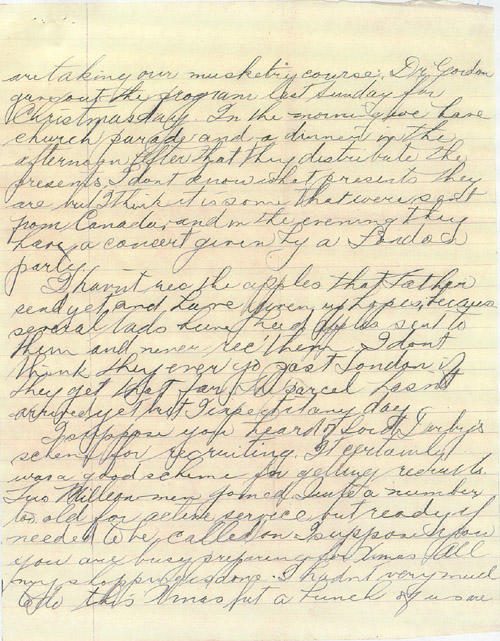 are taking our musketry course. Dr. Gordon
gave out the program last Sunday for
Christmas day. In the morning we have
church parade and a dinner in the
afternoon after that they distribute the
presents I dont know what presents they
are but I think it is some that were sent
from Canada, and in the evening they
have a concert given by a London
party.
I havnt rec the apples that Father
send yet and have given up hopes, because
several lads have had apples sent to
them and never rec' them. I dont
think they ever go past London if
they get that far. The parcel hasnt
arrived yet but I expect it any day
I suppose you heard of Lord Derby's
scheme for recruiting. It certainly
was a good scheme for getting recruits.
Two Million men joined quite a number
too old for active service but ready if
needed to be called on. I suppose now
you are busy preparing for Xmas. All
my shopping is done. I hadnt very much
to do this Xmas but a bunch of us are